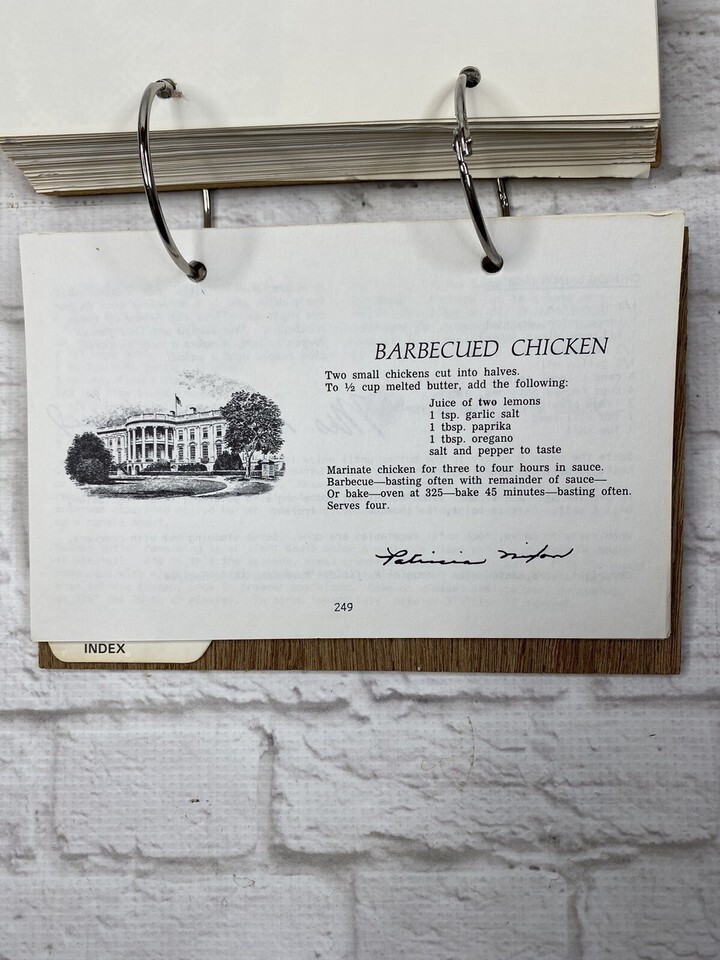 BARBECUED CHICKEN
Two small chickens cut into halves.
To ½ cup melted butter, add the following:
Juice of two lemons
1 tsp. garlic salt
1 tbsp. paprika
1 tbsp. oregano
salt and pepper to taste
Marinate chicken for three to four hours in sauce.
Barbecue—basting often with remainder of sauce—
Or bake—oven at 325—bake 45 minutes—basting often.
Serves four.
Patricia Nixon
249
INDEX